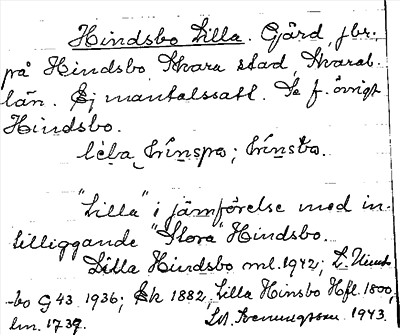 Hindsbo Lilla. Gård, jbr.
på Hindsbo, Skara stad, Skarab.
län. Ej mantalssatt. Se f. övrigt
Hindsbo.
"Lilla" i jämförelse med in-
tilliggande "Stora" Hindsbo.
Lilla Hindsbo ml. 1942; L. Hinds
-bo G 43 1936; Ek 1882, Lilla Hinsbo Hfl. 1800,
lm. 1739. 1943.